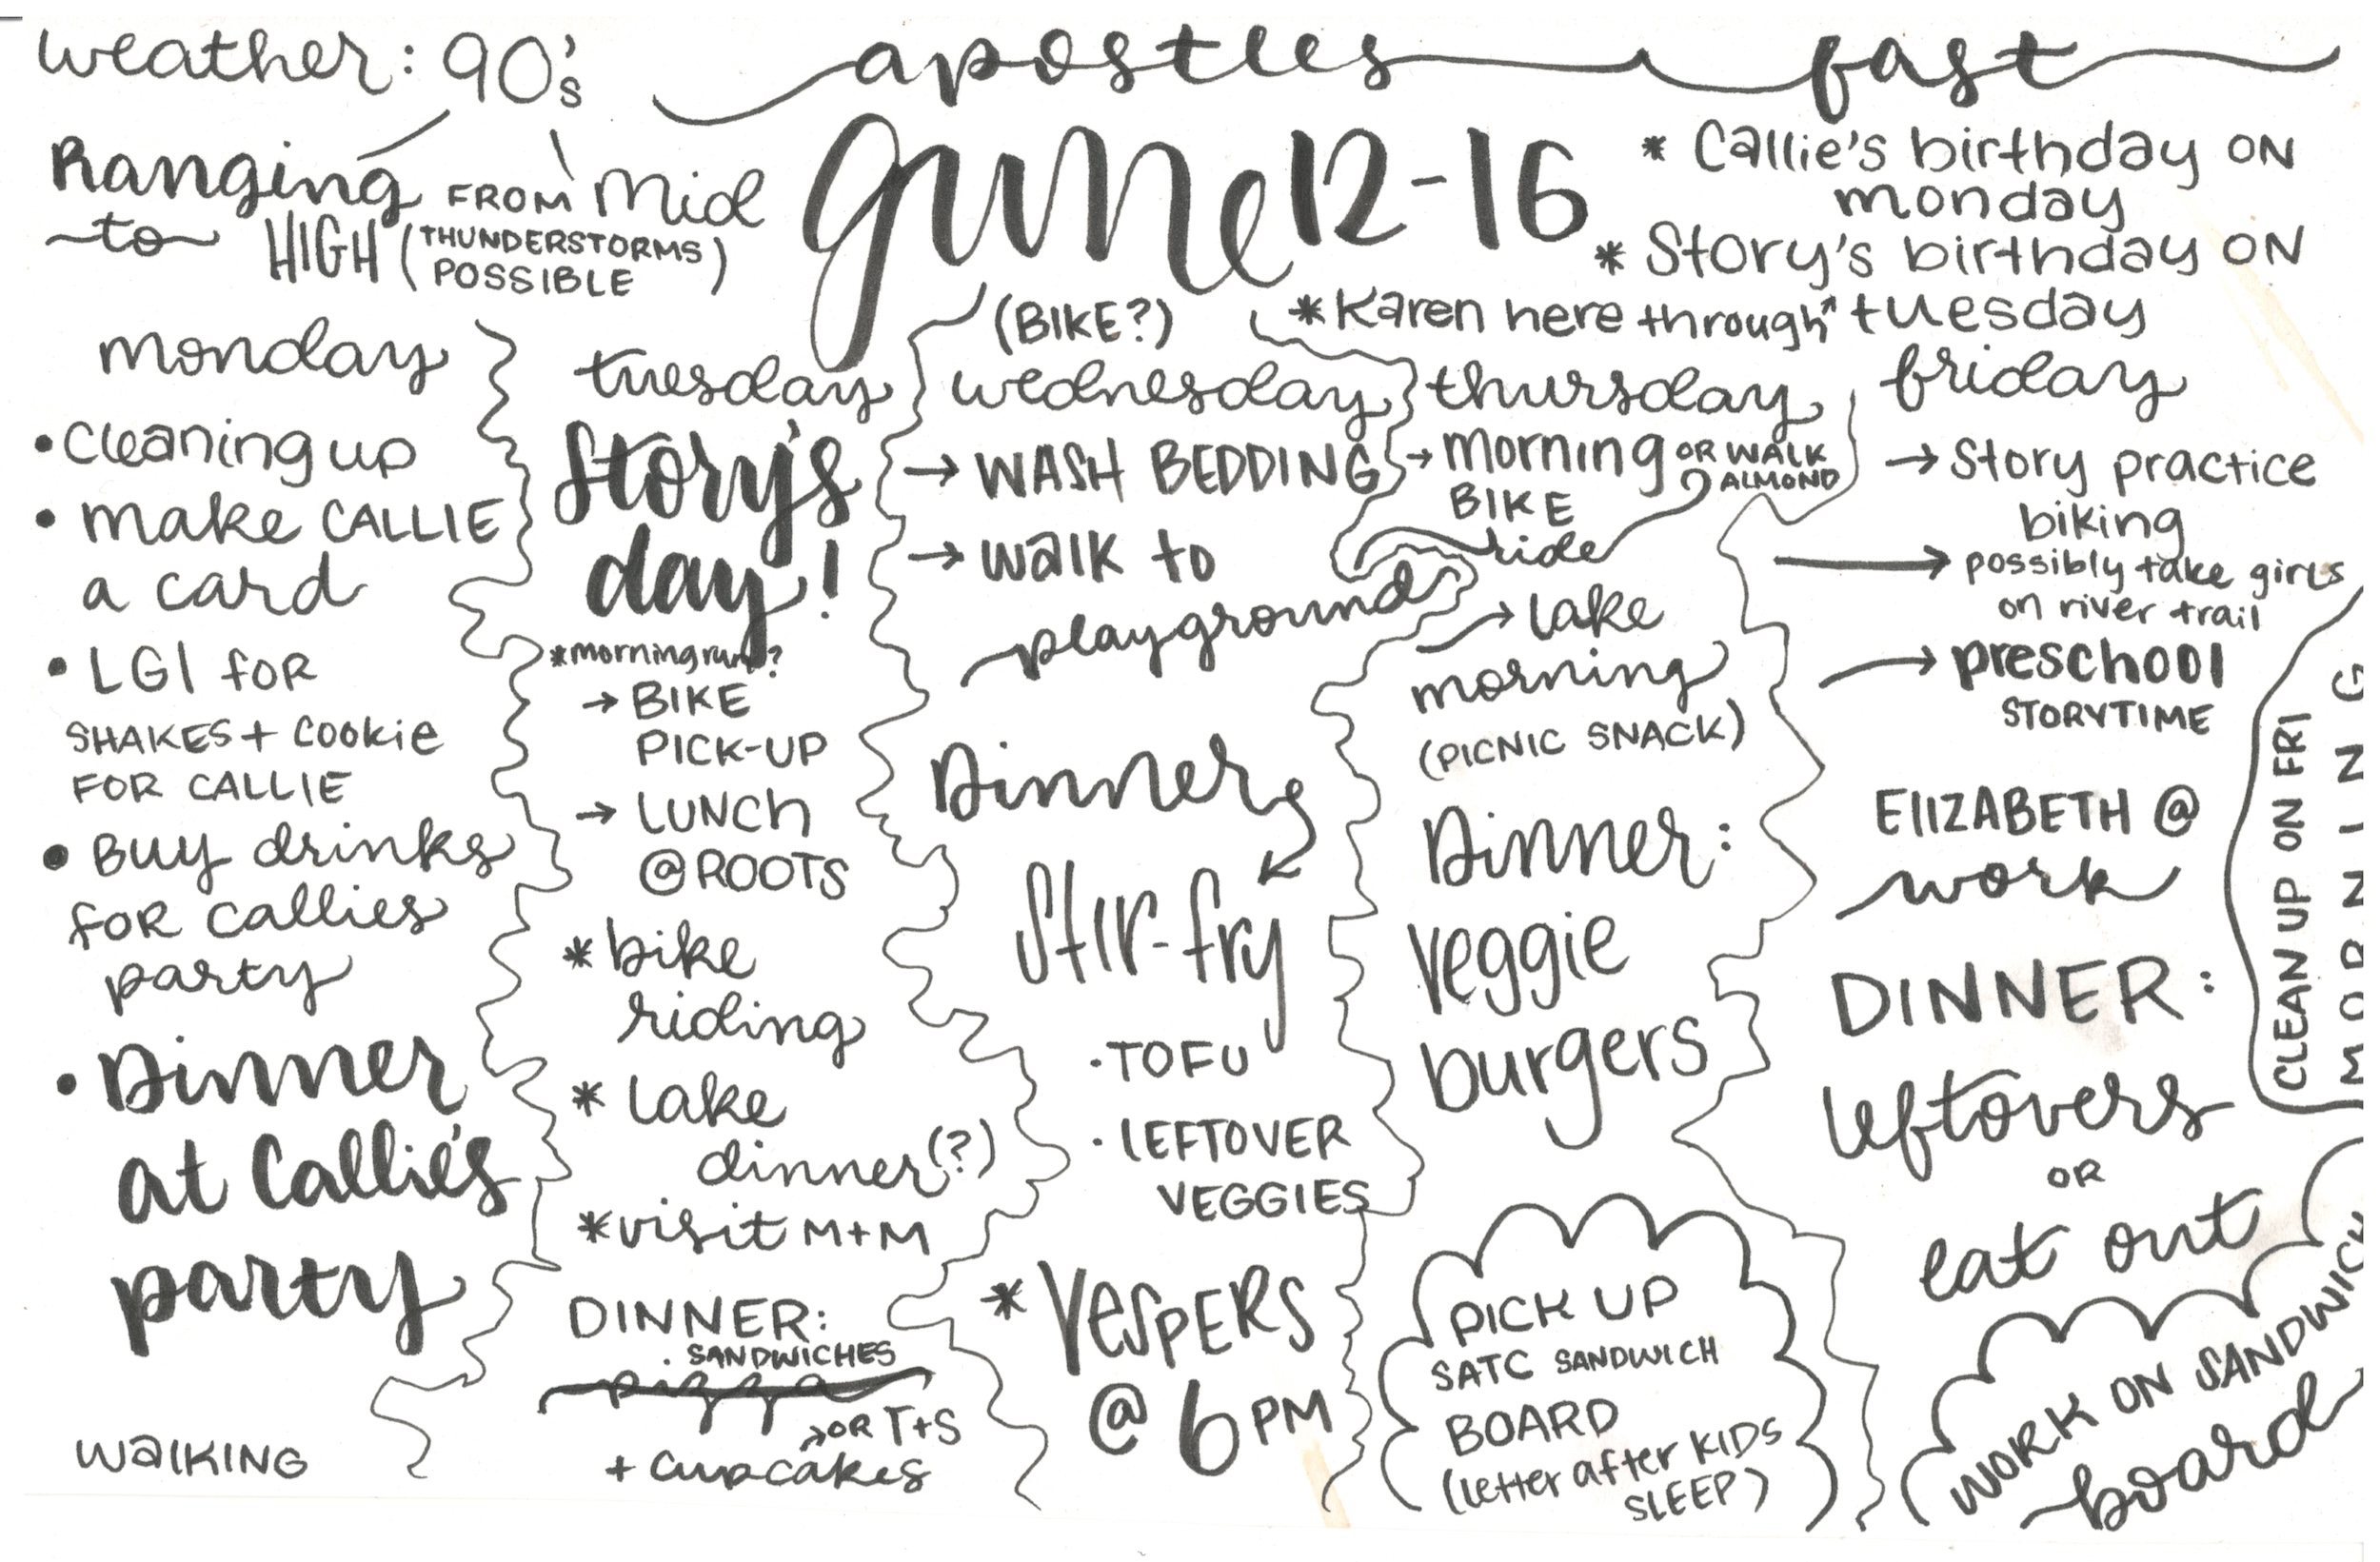 weather: 90's
Ranging FROM Mid
to HIGH (THUNDERSTORMS
POSSIBLE)
apostles fast
June 12-16
* Callie's birthday ON
monday
* Story's birthday ON
tuesday
* Karen here through
monday
• Cleaning up
• make CALLIE
a card
• LGI for
SHAKES + Cookie
FOR CALLIE
• BUY drinks
FOR Callies
party
• Dinner
at Callie's
party
WALKING
tuesday
Story's
day!
* morning run?
→ BIKE
PICK-UP
→ LUNCH
@ ROOTS
* bike
riding
* lake
dinner (?)
* visit M+M
DINNER:
. SANDWICHES
pizza
→ OR T+S
+ cupcakes
(BIKE?)
wednesday
→ WASH BEDDING
→ walk to
playground
Dinner
Stir-fry
· TOFU
· LEFTOVER
VEGGIES
* VESPERS
@ 6 PM
thursday
→ morning OR WALK
BIKE ALMOND
ride
→ lake
morning
(PICNIC SNACK)
Dinner:
veggie
burgers
PICK UP
SATC SANDWICH
BOARD
(letter after KIDS
SLEEP)
friday
→ Story practice
biking
→ possibly take girls
on river trail
→ preschool
STORYTIME
ElIZABETH @
work
DINNER:
leftovers
OR
eat out
CLEAN UP ON FRI
MORNING
WORK ON SANDWICH
board